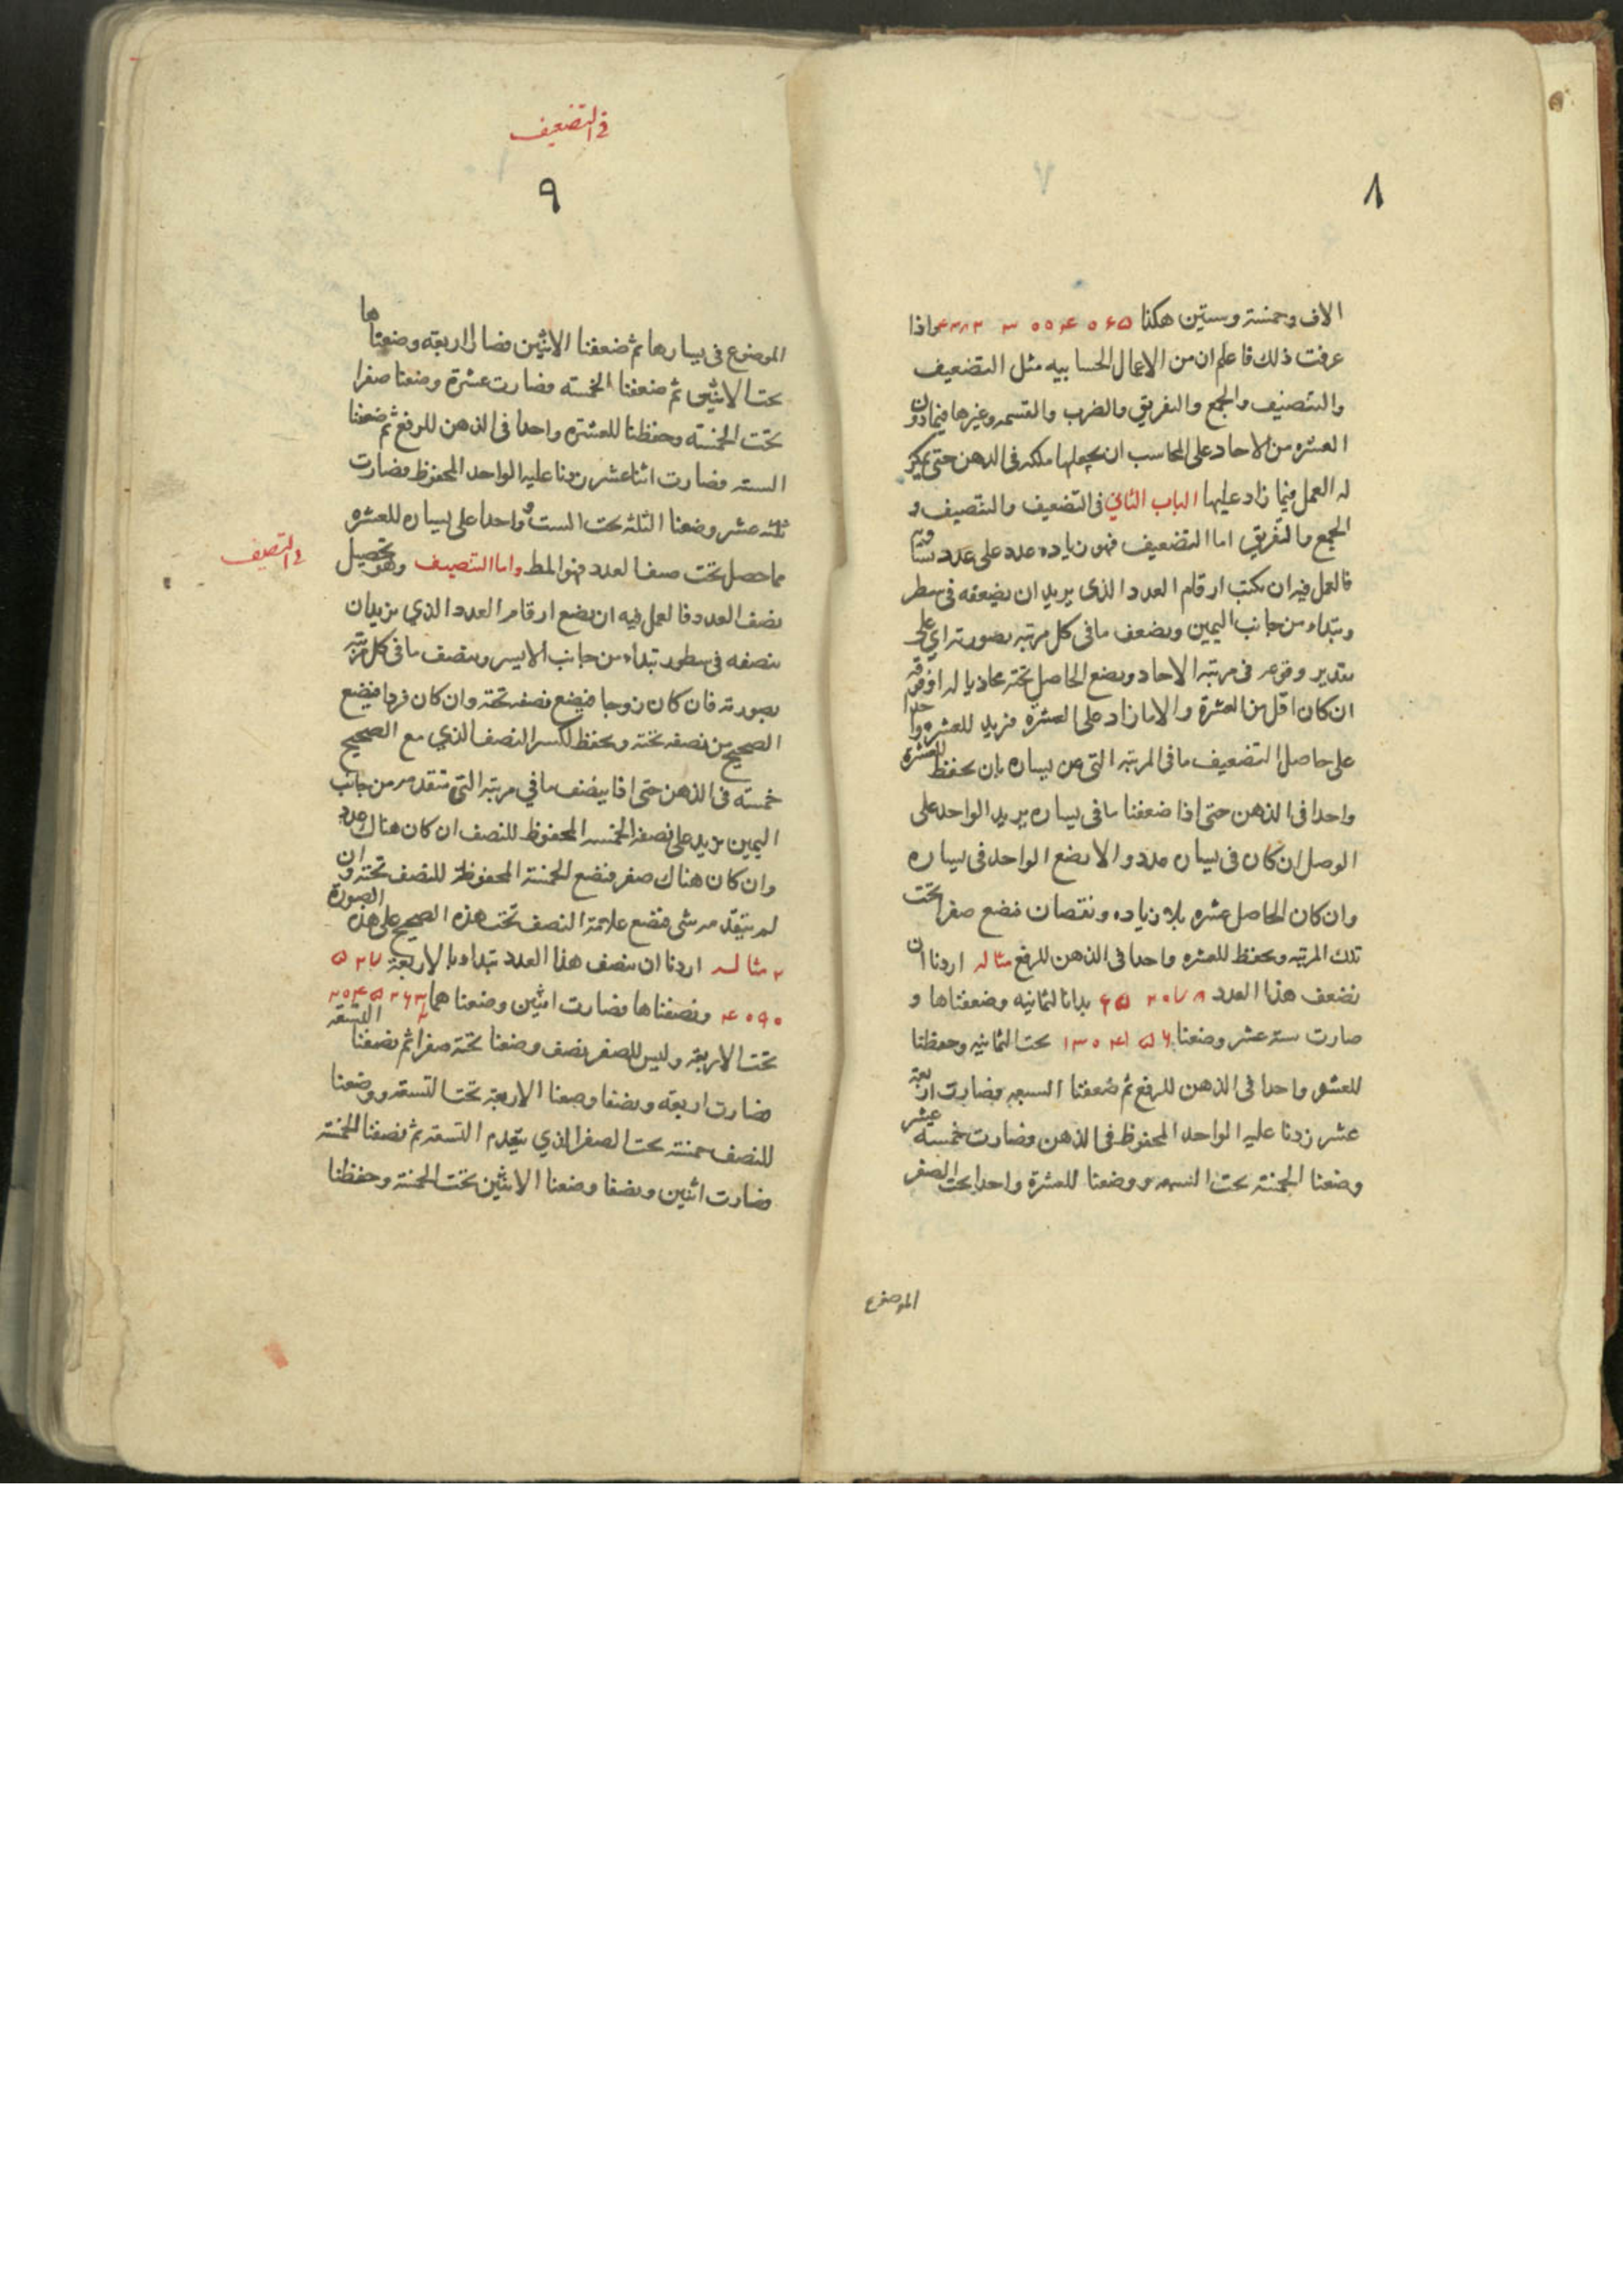 ٨
الاف وخمسة وستين هكذا واذا
عرفت ذلك فاعلم ان من الاعمال الحسابيه مثل التضعيف
والتنصيف والجمع والتفريق والضرب والقسمه وغيرها فيما دون
العشره من الاحاد على المحاسب ان يجعلها ملكه فى الذهن حتى
له العمل فيما زاد عليها الباب الثاني فى التضعيف والتنصيف و
الجمع والتفريق اما التضعيف فهو زياده عدد على عدد
فالعمل فيه ان يكتب ارقام العدد الذى يريد ان يضعفه فى سطر
ويبتداء من جانب اليمين ويضعف ما فى كل مرتبه بصورته اي على
تقدير وقوعه فى مرتبه الاحاد ويضع الحاصل تحته محاذيا له او فوقه
ان كان اقل من العشرة والا ما زاد على العشره فزيد للعشره واحدا
على حاصل التضعيف ما فى المرتبه التى عن يساره بان يحفظ للعشره
واحدا فى الذهن حتى اذا ضعفنا ما فى يساره يريد الواحد على
الوصل ان كان فى يساره عدد والا يضع الواحد فى يساره
وان كان الحاصل عشره بلا زياده ونقصان فضع صفرا تحت
تلك المرتبه ويحفظ للعشره واحدا فى الذهن للرفع مثاله اردنا ان
نضعف هذا العدد بدانا لثمانيه وضعفناها و
صارت سته عشر وضعنا تحت الثمانيه وحفظنا
للعشر واحدا فى الذهن للرفع ثم ضعفنا السبعه فصارت اربعة
عشر زدنا عليه الواحد المحفوظ فى الذهن فصارت خمسة عشر
وضعنا الخمسة تحت السبعه ووضعنا للعشرة واحدا تحت الصفر
الموضوع
فى التضعيف
٩
الموضوع فى يسارها ثم ضعفنا الاثنين فصار اربعة وضعناها
تحت الاثنين ثم ضعفنا الخمسه فصارت عشرة وضعنا صفرا
تحت الخمسة وحفظنا للعشره واحدا فى الذهن للرفع ثم ضعفنا
السته فصارت اثنا عشر زدنا عليه الواحد المحفوظ فصارت
ثلثه عشر وضعنا الثلثه تحت الست وواحدا على يساره للعشره
فى التنصيف
مما حصل تحت صف العدد فهو المط واما التنصيف وهو تحصيل
نصف العدد فالعمل فيه ان نضع ارقام العدد الذي نريد ان
ننصفه فى سطور تبداء من جانب الايسر وننصف ما فى كل مرتبه
بصورته فان كان زوجا فيضع نصفه تحته وان كان فردا فيضع
الصحيح من نصفه تحته ويحفظ لكسر النصف الذي مع الصحيح
خمسة فى الذهن حتى اذا ينصف ما في مرتبه التى تتقدمه من جانب
اليمين نزيد على نصفه الخمسه المحفوظ للنصف ان كان هناك عدد
وان كان هناك صفر فنضع الخمسة المحفوظة للنصف تحته وان
لم يتقدمه شى فنضع علامة النصف تحت هذه الصحيح على هذه الصورة
مثاله اردنا ان ننصف هذا العدد نبداء بالاربعة
ونصفناها فصارت اثنين وضعنا هما
تحت الاربعة وليس للصفر نصف وضعنا تحته صفرا ثم نصفنا التسعة
فصارت اربعة ونصفا وضعنا الاربعة تحت التسعه ووضعنا
للنصف خمسة تحت الصفر الذي يتقدم التسعه ثم نصفنا الخمسة
فصارت اثنين ونصفا وضعنا الاثنين تحت الخمسة وحفظنا